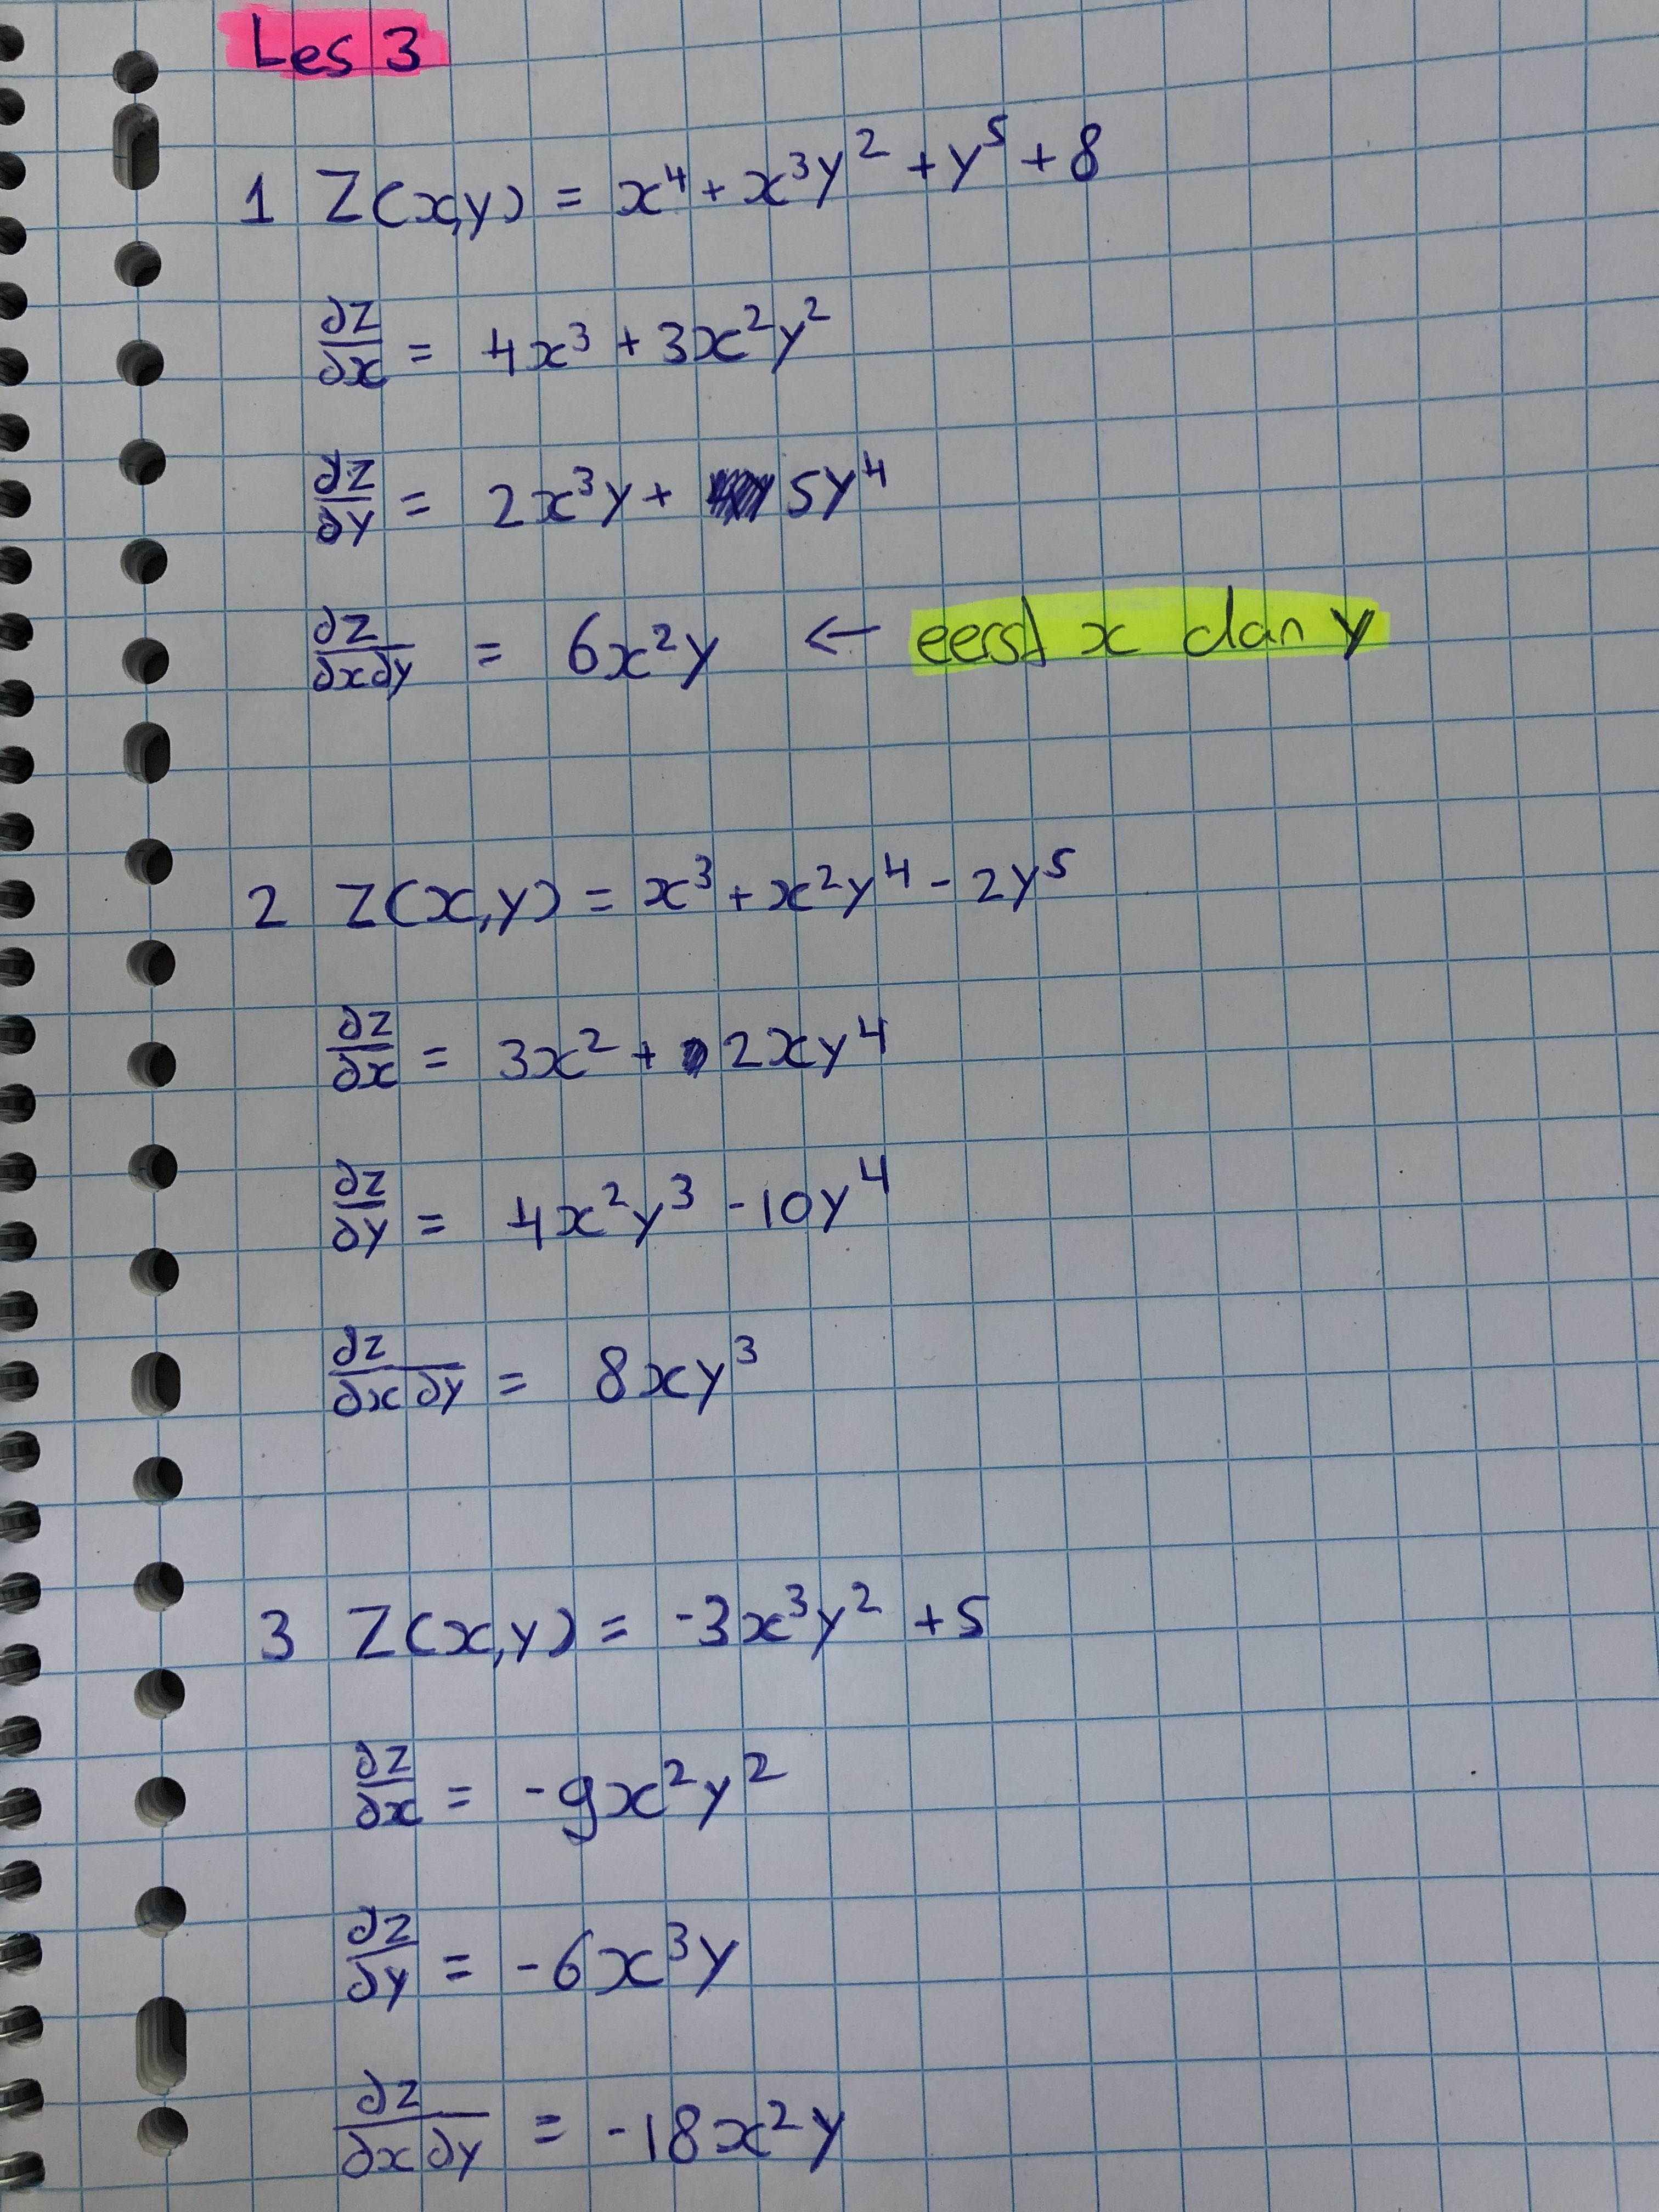 Les 3
1 Z(x,y) = x⁴ + x³y² + y⁵ + 8
∂z/∂x = 4x³ + 3x²y²
∂z/∂y = 2x³y + 5y⁴
∂z/∂x∂y = 6x²y ← eerst x dan y
2 Z(x,y) = x³ + x²y⁴ - 2y⁵
∂z/∂x = 3x² + 2xy⁴
∂z/∂y = 4x²y³ - 10y⁴
∂z/∂x∂y = 8xy³
3 Z(x,y) = -3x³y² + 5
∂z/∂x = -9x²y²
∂z/∂y = -6x³y
∂z/∂x∂y = -18x²y